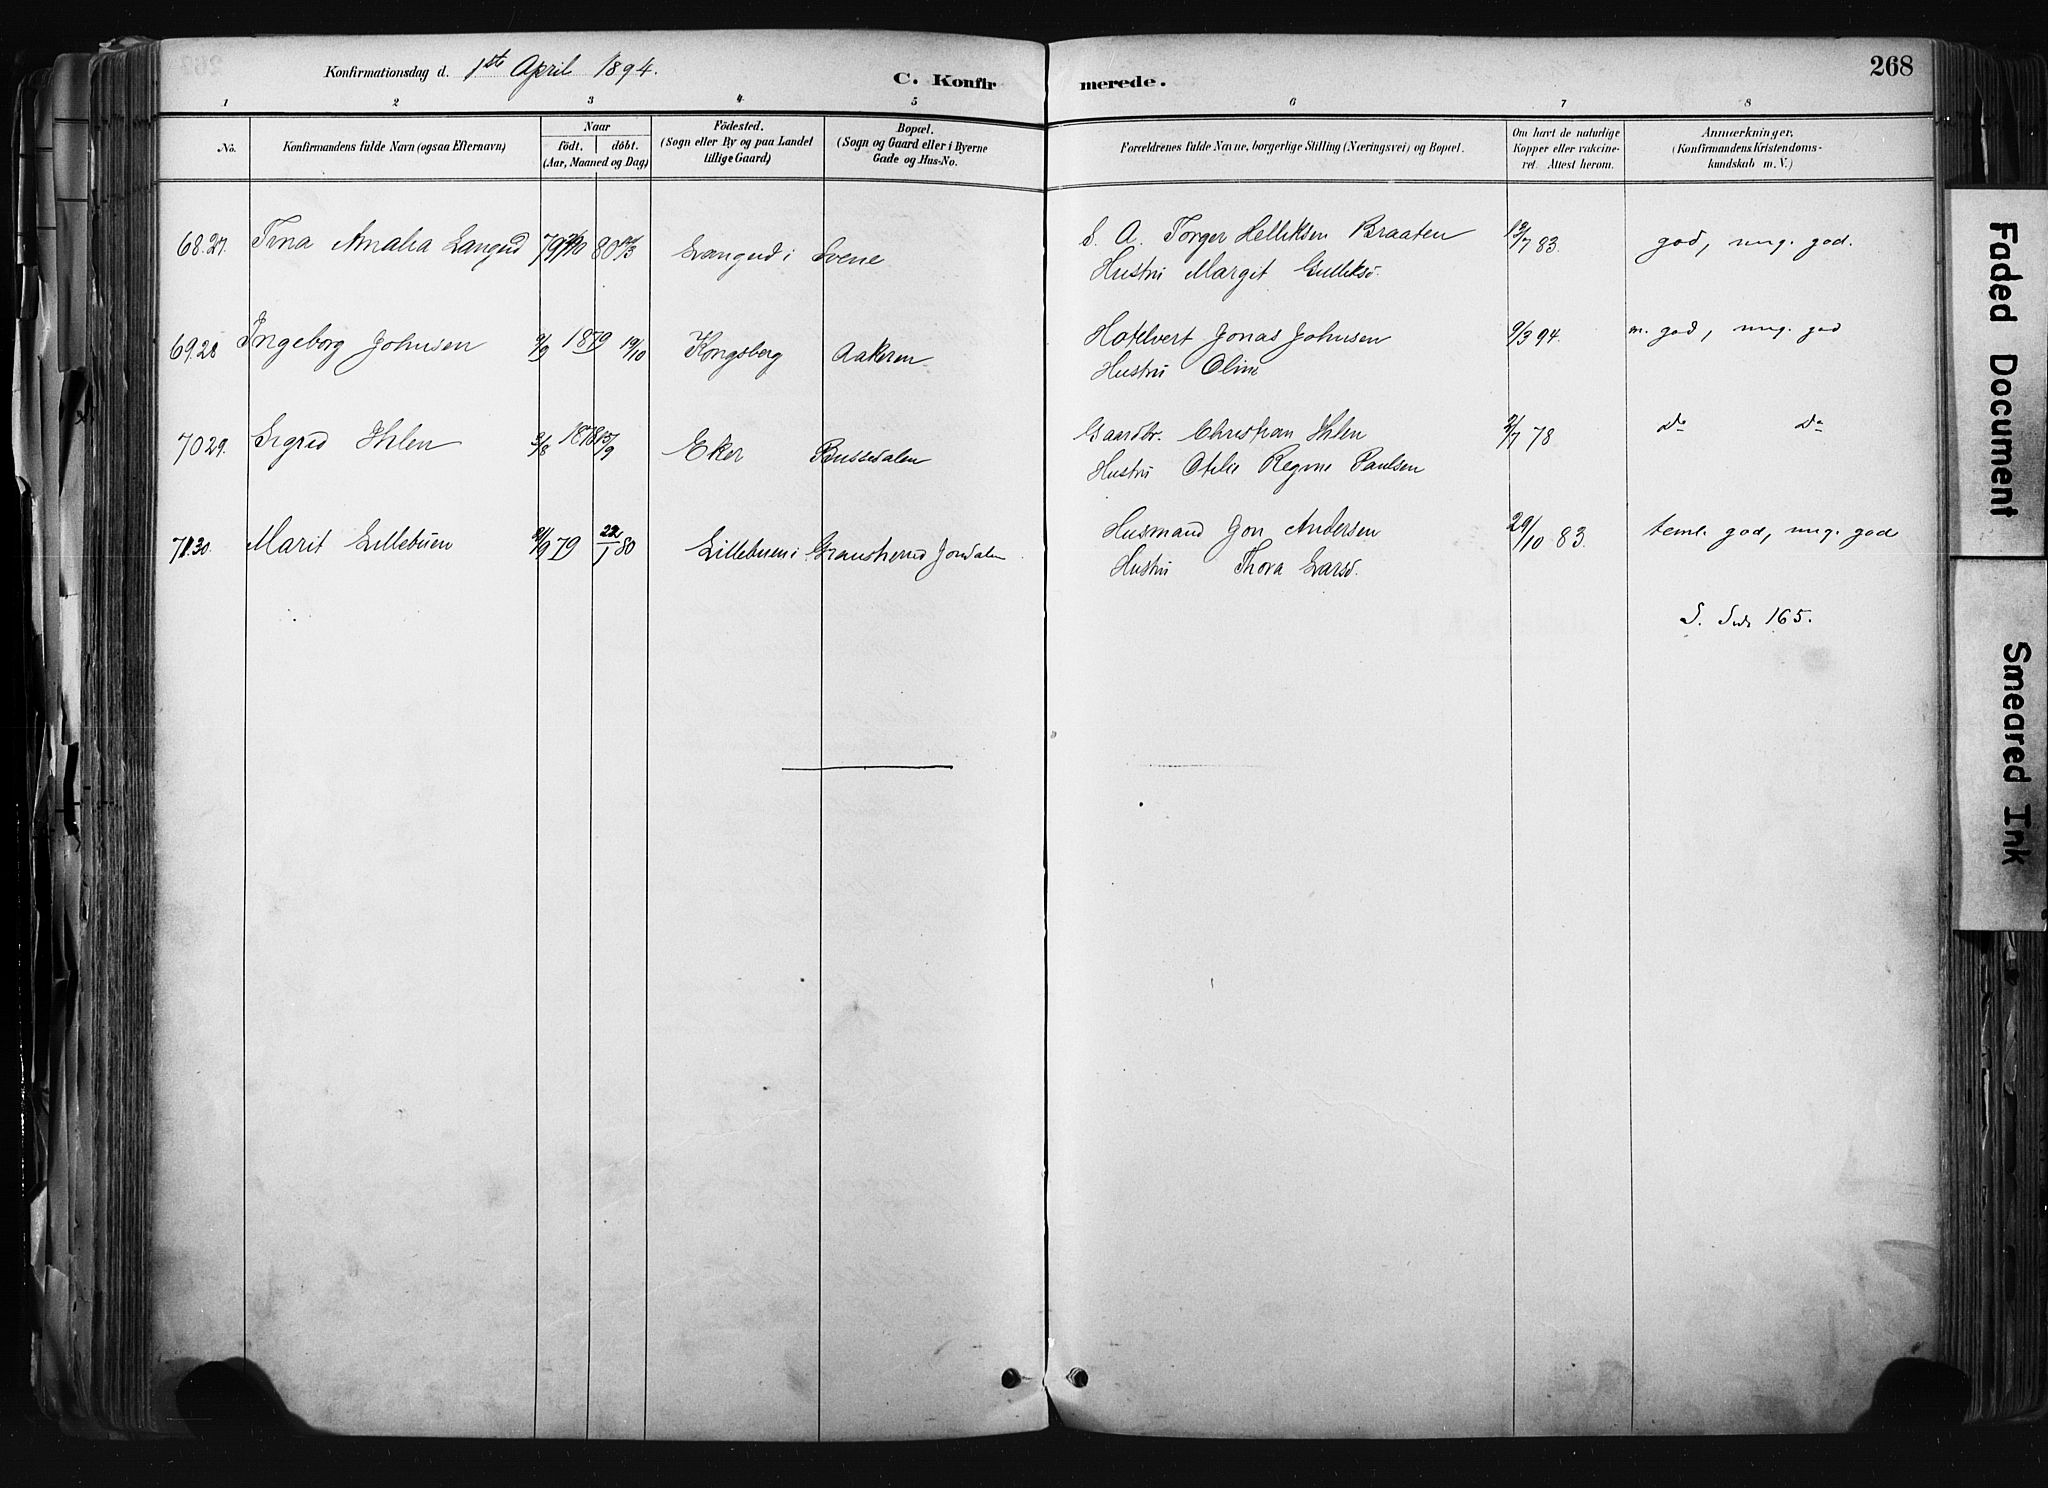 Konfirmationsdag d. 1ste April 1894.
C. Konfirmerede.
268
1 2 3 4 5 6 7 8
No.
Konfirmandens fulde Navn (ogsaa Efternavn)
Naar
födt. döbt.
(Aar, Maaned og Dag)
Födested.
(Sogn eller By og paa Landet
tillige Gaard)
Bopæl.
(Sogn og Gaard eller i Byerne
Gade og Hus-No.
Forældrenes fulde Navne, borgerlige Stilling (Næringsvei) og Bopæl.
Om havt de naturlige
Kopper eller vakcine-
ret. Attest herom.
Anmærkninger.
(Konfirmandens Kristendoms-
kundskab m. V.)
68.27. Tina Amalia Langud 79 80 Langud i Svene S. A. Torger Helleksen Braaten 12/7 83. god, meg. god.
Hustru Margit Gulleksd.
69.28 Ingeborg Johnsen 9/9 1879 19/10 Kongsberg Aakeren Hotelvert Jonas Johnsen 9/3 94. m. god, meg. god
Hustru Oline
70 29. Sigrid Ihlen 3/8 1878 15/9 Eker Bussedalen Gaardbr. Christian Ihlen 2/7 78 Do Do
Hustru Otelie Regine Paulsen
71.30. Marit Lillebuen 21/9 79 22/1 80 Lillebuen i Gransherred Jondalen Husmand Jon Andersen 29/10 83. teml. god, meg. god
Hustru Thora Larsd.
S. Side 165.
Faded Document
Smeared Ink